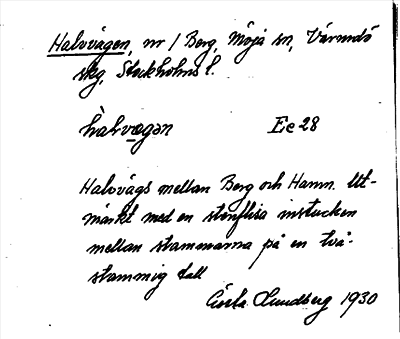 Halvvägen, nr 1 Berg, Möja sn, Värmdö
skg, Stockholms l.
hàlvægən Ee 28
Halvvägs mellan Berg och Hamn. Ut-
märkt med en stenflisa instucken
mellan stammarna på en två-
stammig tall
Gösta Lundberg 1930